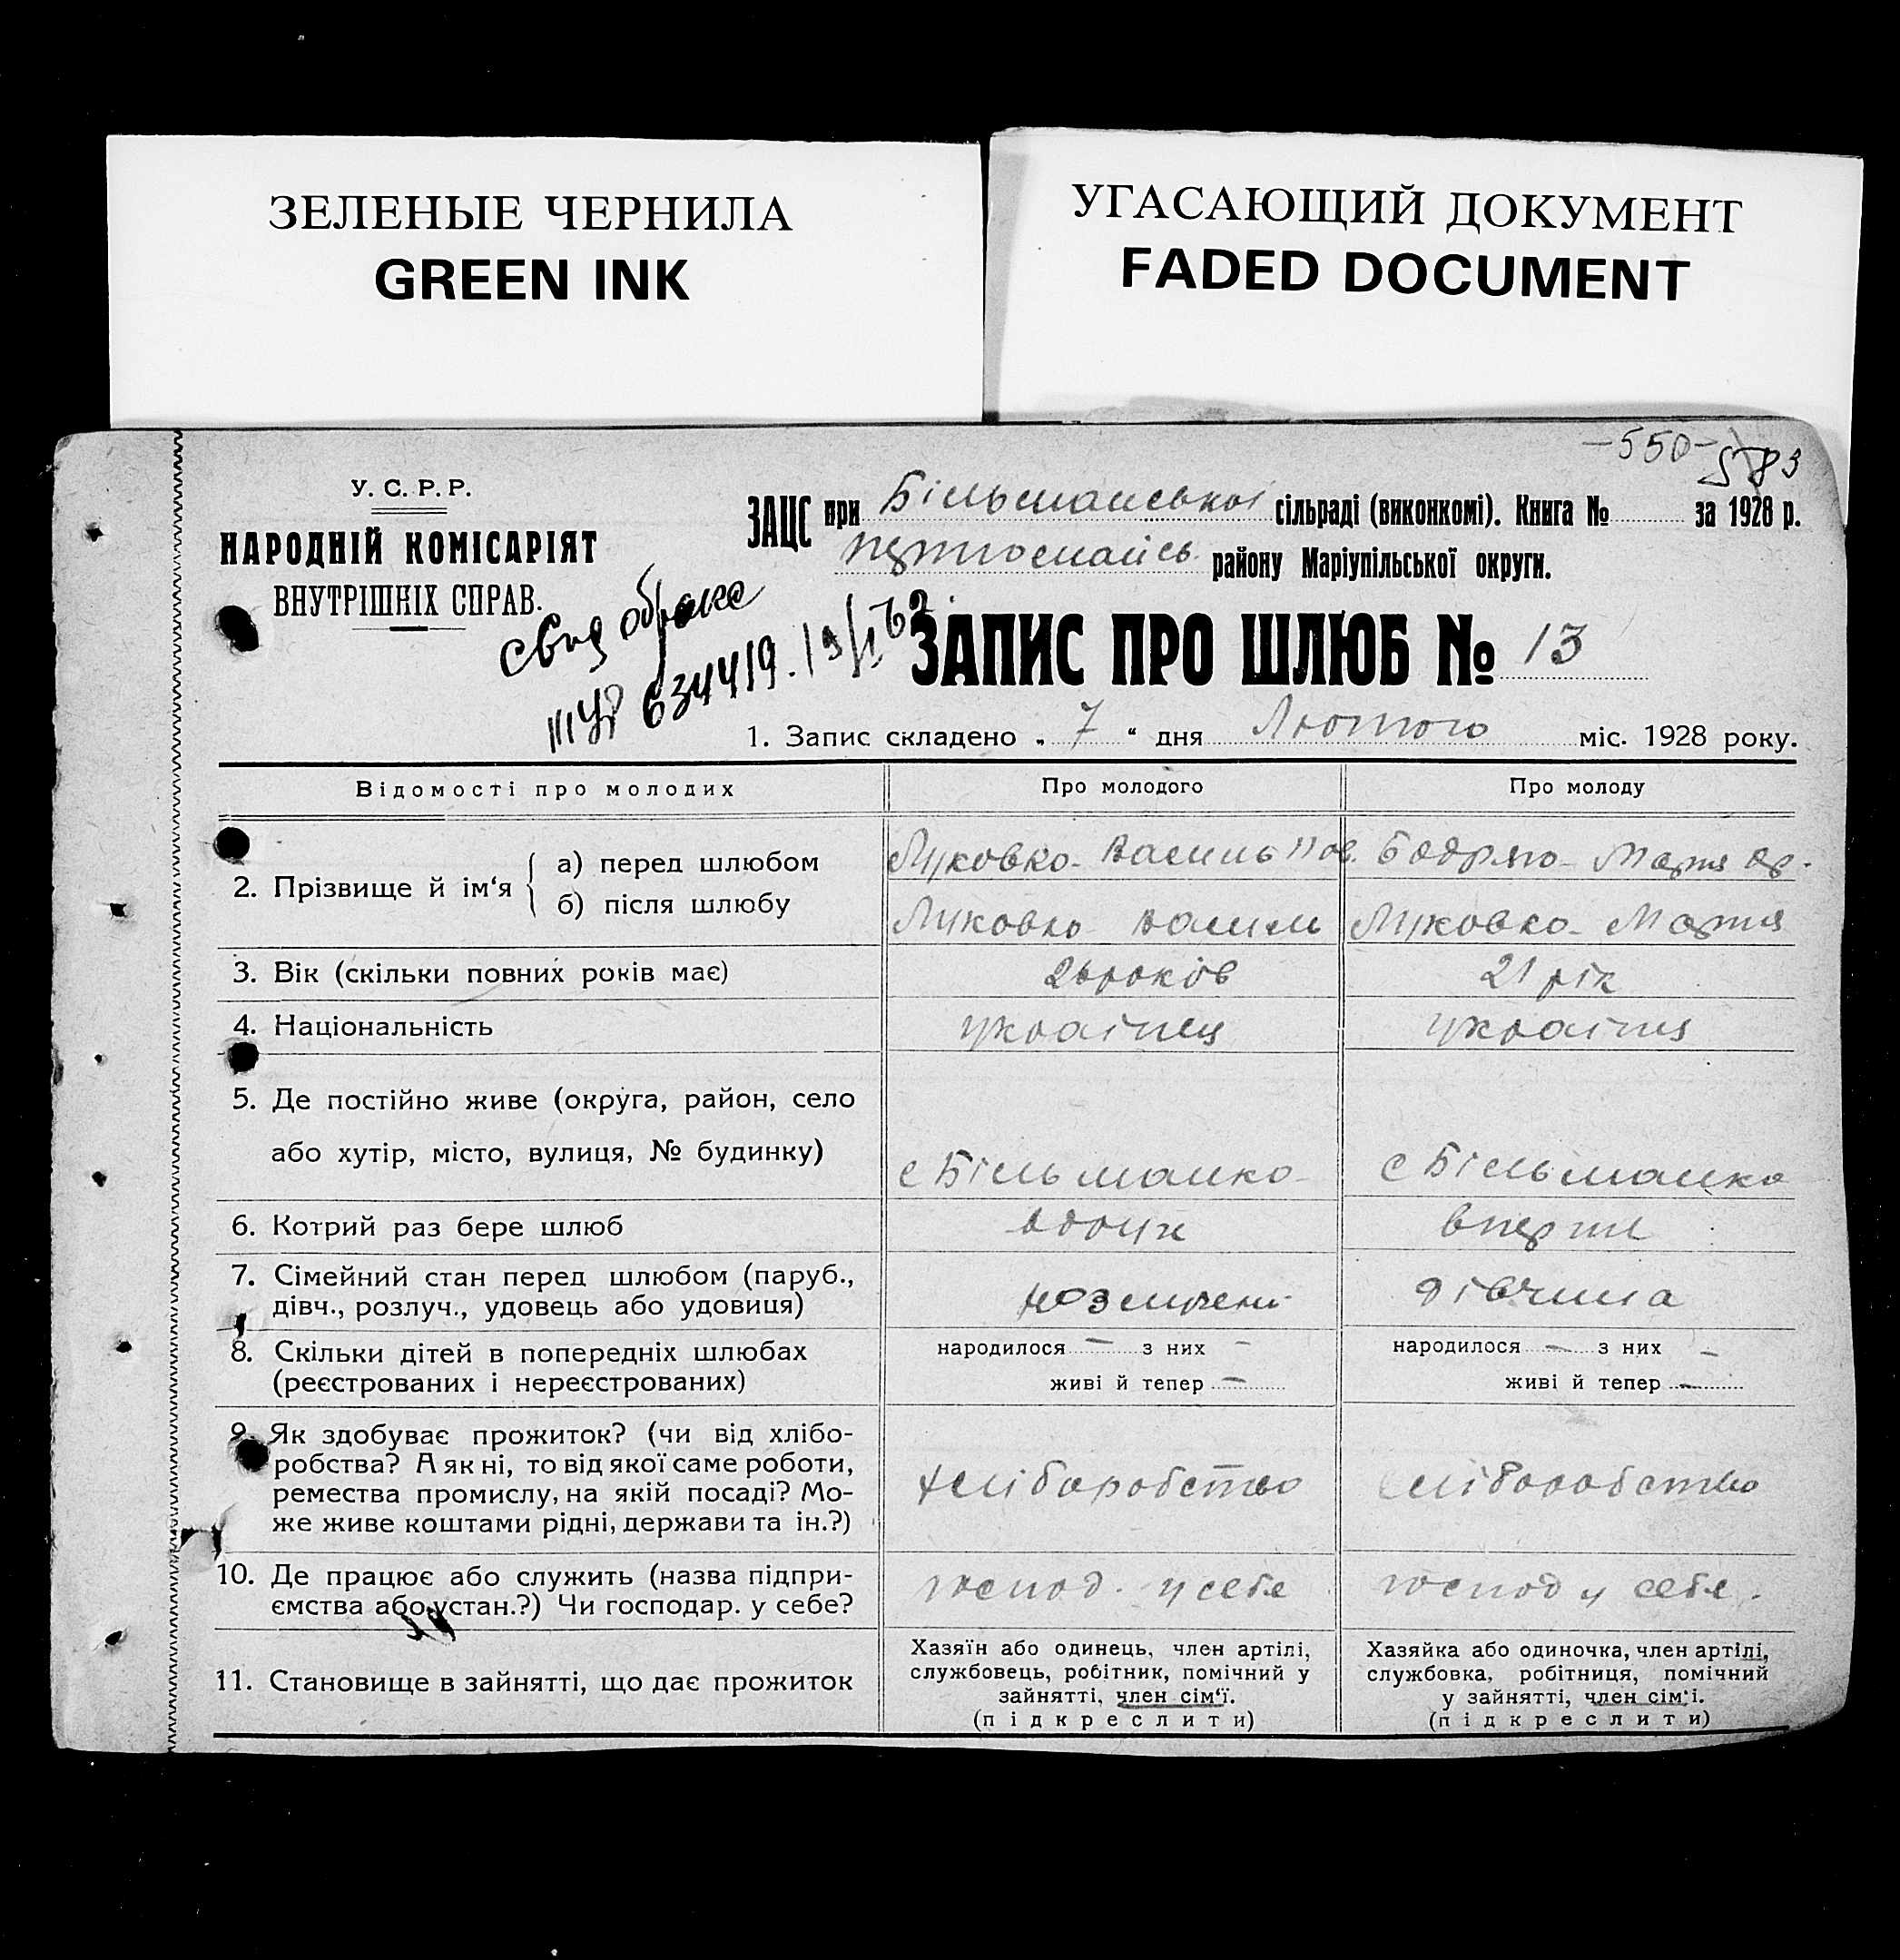 ЗЕЛЕНЫЕ ЧЕРНИЛА
GREEN INK
УГАСАЮЩИЙ ДОКУМЕНТ
FADED DOCUMENT
-550-
583
У. С. Р. Р.
НАРОДНІЙ КОМІСАРІЯТ
ВНУТРІШНІХ СПРАВ.
ЗАЦС при Більманської сільраді (виконкомі). Книга № за 1928 р.
району Маріупільської округи.
свид браке
634419.
ЗАПИС ПРО ШЛЮБ № 13
1. Запис складено „ 7 “ дня Лютого міс. 1928 року.
Відомості про молодих
Про молодого
Про молоду
2. Прізвище й ім‘я
а) перед шлюбом
Луковко Василь Пов.
Бодряго Марія
б) після шлюбу
Луковко Василь
Луковко Марія
3. Вік (скільки повних років має)
26 років
21 рік
4. Національність
українец
українця
5. Де постійно живе (округа, район, село
або хутір, місто, вулиця, № будинку)
с Більманка
с Більманка
6. Котрий раз бере шлюб
вдруге
вперше
7. Сімейний стан перед шлюбом (паруб.,
дівч., розлуч., удовець або удовиця)
розлучений
дівчина
8. Скільки дітей в попередніх шлюбах
(реєстрованих і нереєстрованих)
народилося — з них —
живі й тепер —
народилося — з них —
живі й тепер —
9. Як здобуває прожиток? (чи від хлібо-
робства? А як ні, то від якої саме роботи,
ремества промислу, на якій посаді? Мо-
же живе коштами рідні, держави та ін.?)
хліборобство
хліборобство
10. Де працює або служить (назва підпри-
ємства або устан.?) Чи господар. у себе?
господ. у себе
господ у себе.
11. Становище в зайнятті, що дає прожиток
Хазяїн або одинець, член артілі,
службовець, робітник, помічний у
зайнятті, член сім‘ї.
(підкреслити)
Хазяйка або одиночка, член артілі,
службовка, робітниця, помічний
у зайнятті, член сім‘і.
(підкреслити)